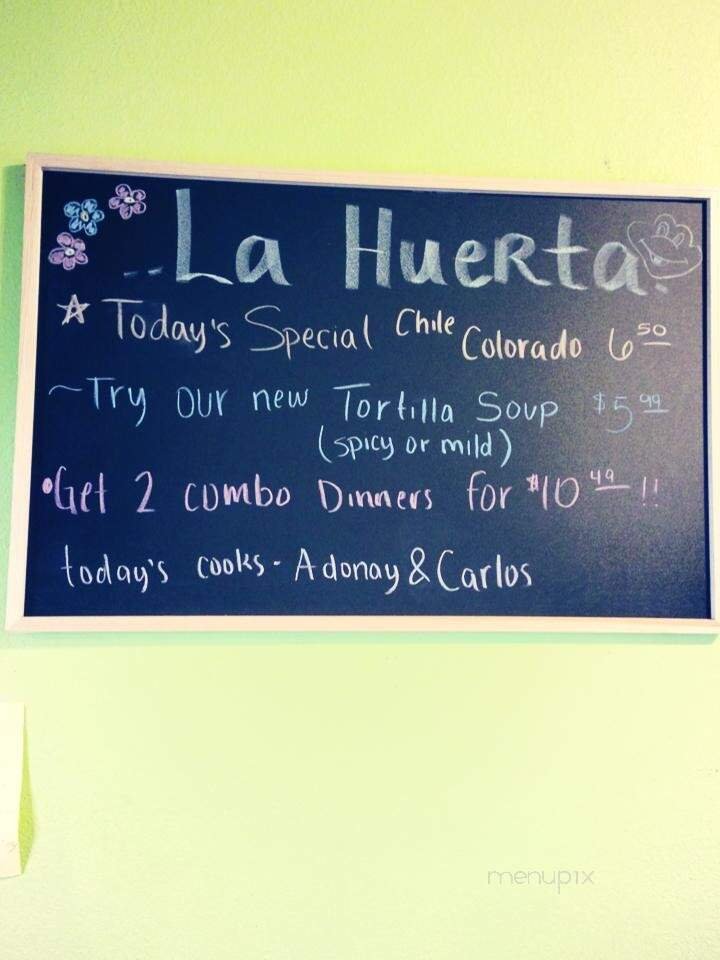 La Huerta
Today's Special Chile Colorado 6 50
~Try our new Tortilla Soup $5 99
(spicy or mild)
•Get 2 combo Dinners for $10 49 !!
today's cooks - Adonay & Carlos
menupix